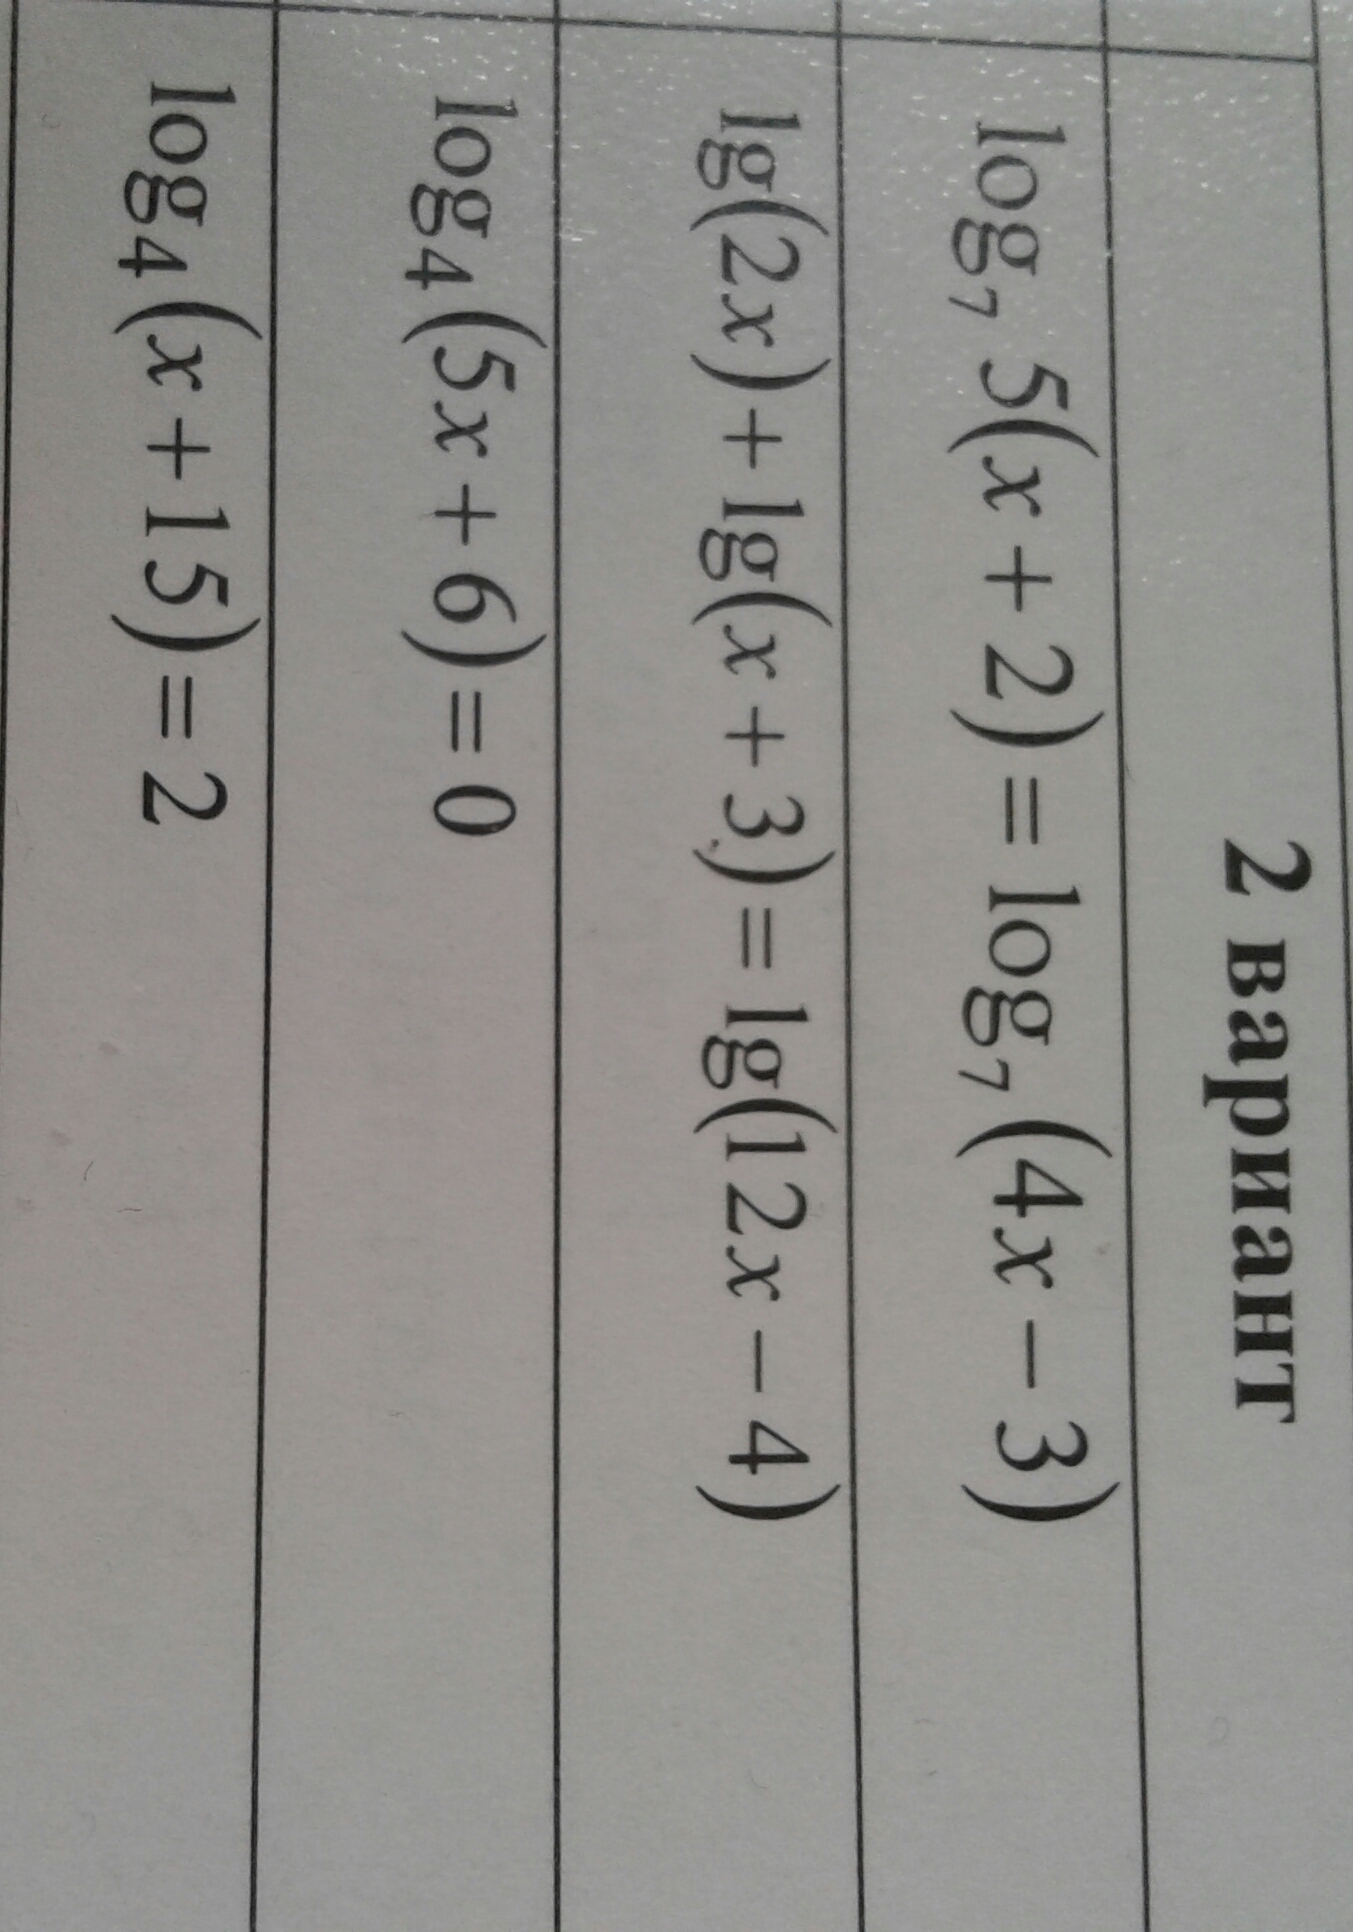 2 вариант
log₇ 5(x + 2) = log₇ (4x − 3)
lg(2x) + lg(x + 3) = lg(12x − 4)
log₄(5x + 6) = 0
log₄(x + 15) = 2